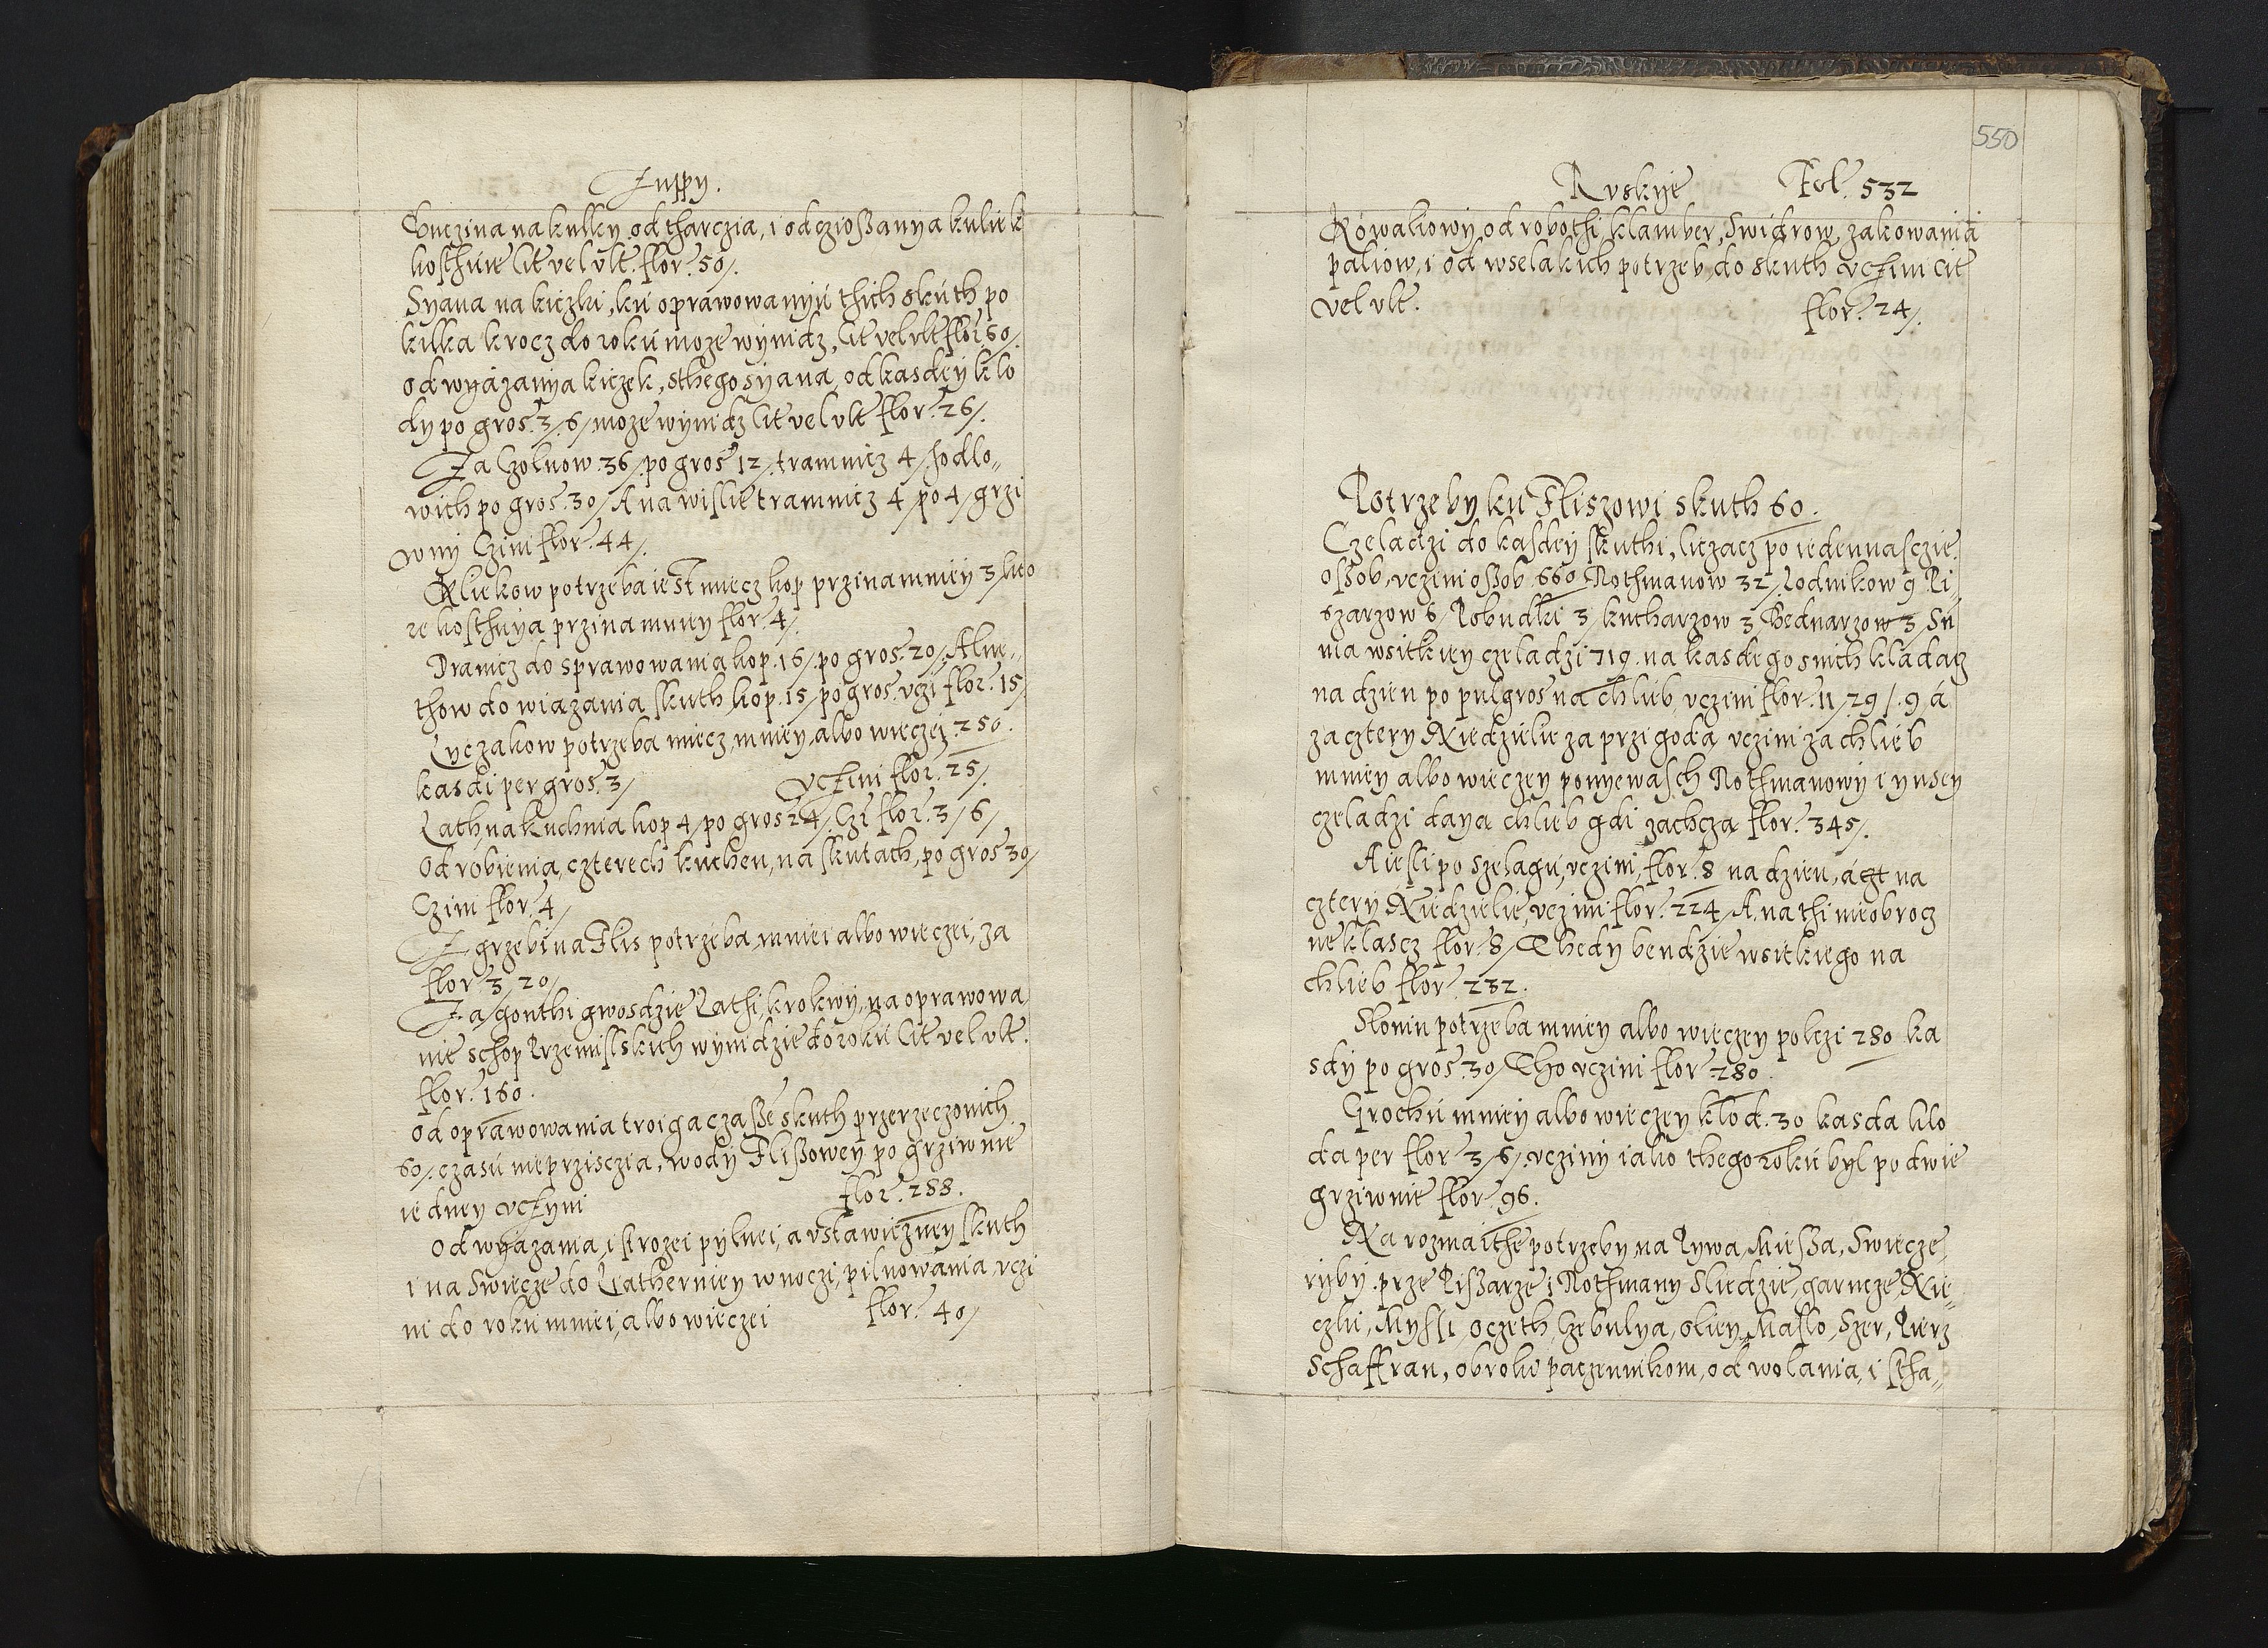 Zuppy.
Buczina na kulky od tharczia, i odczioßanya kuliek
kosthuie ut vel vlt. flor. 50/.
Syana na kiczki, ku oprawowanyu thich skuth po
kilka krocz do roku moze wynidz, ut vel vlt flor. 60/.
od wyazanya kiczek, sthego syana od kasdey klo
dy po gros. 3/6/ moze wynidz ut vel vlt flor. 26/.
Za Czolnow .36/. po gros 12/. tramnicz 4/. Jodlo„
wich po gros. 30/ A na wislie tramnicz 4/ po 4/ grzi
wny Czini flor. 44/.
Kliekow potrzeba iest miecz kop przinamniey 3/ kto
re kosthuya przinamniey flor. 4/.
Dranicz do sprawowania kop. 16/. po gros. 20/. Alne„
thow do wiazania skuth kop. 15/ po gros. vczi flor. 15/
Lyczakow potrzeba miecz mniey albo wieczej .250.
kasdi per gros. 3/ vczini flor. 25/.
Lath na kuchnia kop 4/ po gros 24/. Czi flor. 3/6/
Od robienia, czterech kuchen, na skutach, po gros 30/
Czini flor. 4/
Zgrzebi na Flis potrzeba, mniei albo wieczei, za
flor 3/20/
Za gonthi gwosdzie Lathi, krokwy, na oprawowa
nie schop Przemislskich wynidzie do roku ut vel vlt.
flor. 160.
Od oprawowania troiga czasße skuth przerzeczonich
60/. czasu nieprzisczia, wody Flißowey po grziwnie
iedney vczyni flor. 288.
Od wyazania, i strozei pylnei, a vstawiczney skuth
i na Swiecze do Latherniey w noczi, pilnowania, vczi
ni do roku mniei, albo wieczei flor. 40/
550
Ruskye Fol. 532
Kowaliowy od robothi klamber, Swidrow, zakowania
paliow, i od wselakich potrzeb, do skuth vczini ut
vel vlt. flor. 24/.
Potrzeby ku Fliszowi skuth 60.
Czeladzi do kasdey skuthi, liczacz po iedennasczie
oßob, vczini oßob 660 Rothmanow 32/. Rodnikow 9 Pi„
szarzow 6/ Pobudki 3/ kucharzow 3 Bednarzow 3/ Su
ma wsitkiey czeladzi 719. na kasdego snich kladacz
na dzien po pulgros na chlieb, vczini flor. 11/29/.9 á
za cztery Niedzielie za przigoda vczini za chlieb
mniey albo wieczey ponyewasch Rothmanowy i ynsey
czeladzi daya chlieb gdi zachcza flor. 345/.
Aiesli po szelagu, vczini, flor. 8 na dzien, á czt na
cztery Niedzielie, vczini flor. 224/ A. na thi nieobrocz
ne klascz flor. 8/ Thedy bendzie wsitkiego na
chlieb flor. 232.
Slonin potrzeba mniey albo wieczey polczi 280 ka
sdy po gros. 30/ Tho vczini flor. 280.
Grochu mniey albo wieczey klod. 30 kasda klo
da per flor 3/6/. vcziny iako thego roku byl po dwie
grziwnie flor. 96.
Na rozmaithe potrzeby, na Pywa, Mießa, Swiecze,
ryby, prze Pißarze i Rothmany Sliedzie, garncze, Nie„
czki, Myssi, oczeth, Czebulya, oliey, Maslo, Szer, Pierz
Schaffran, obroku paczennikom, od wolania, i stha„